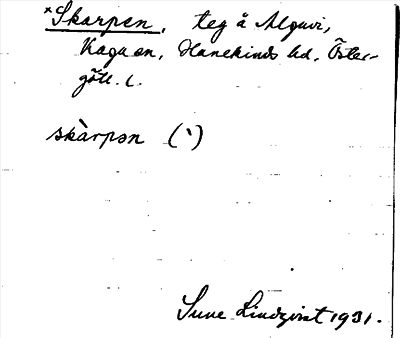 ×Skarpen, teg å Alguvi,
Kaga sn, Hanekinds hd, Öster-
götl. l.
skàrpən (`)
Sune Lindqvist 1931.